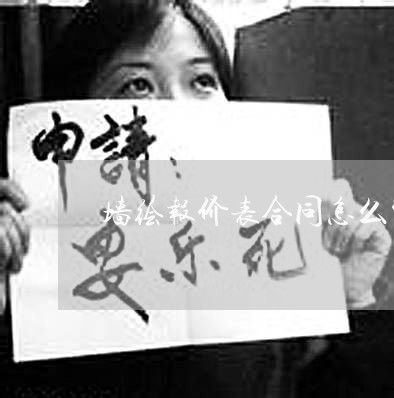 申請：
墙绘报价表合同怎么
安乐死